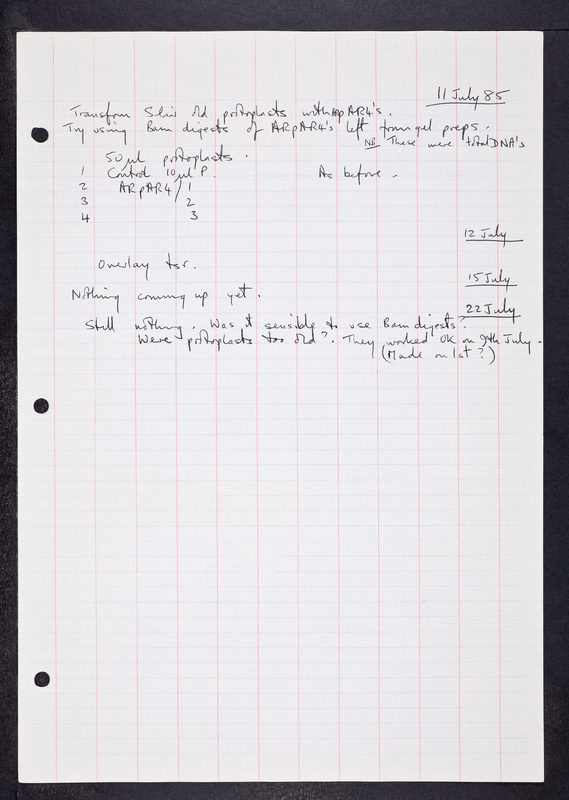 11 July 85
Transform Sliv old protoplasts with ARpAR4's.
Try using Bam digests of ARpAR4's left from gel preps.
NB These were total DNA's
50 µl protoplasts.
1 Control 10 µl P. As before.
2 ARpAR4/1
3 2
4 3
12 July
Overlay tsr.
15 July
Nothing coming up yet.
22 July
Still nothing. Was it sensible to use Bam digests?
Were protoplasts too old? They worked OK on 9th July.
(Made on 1st?)